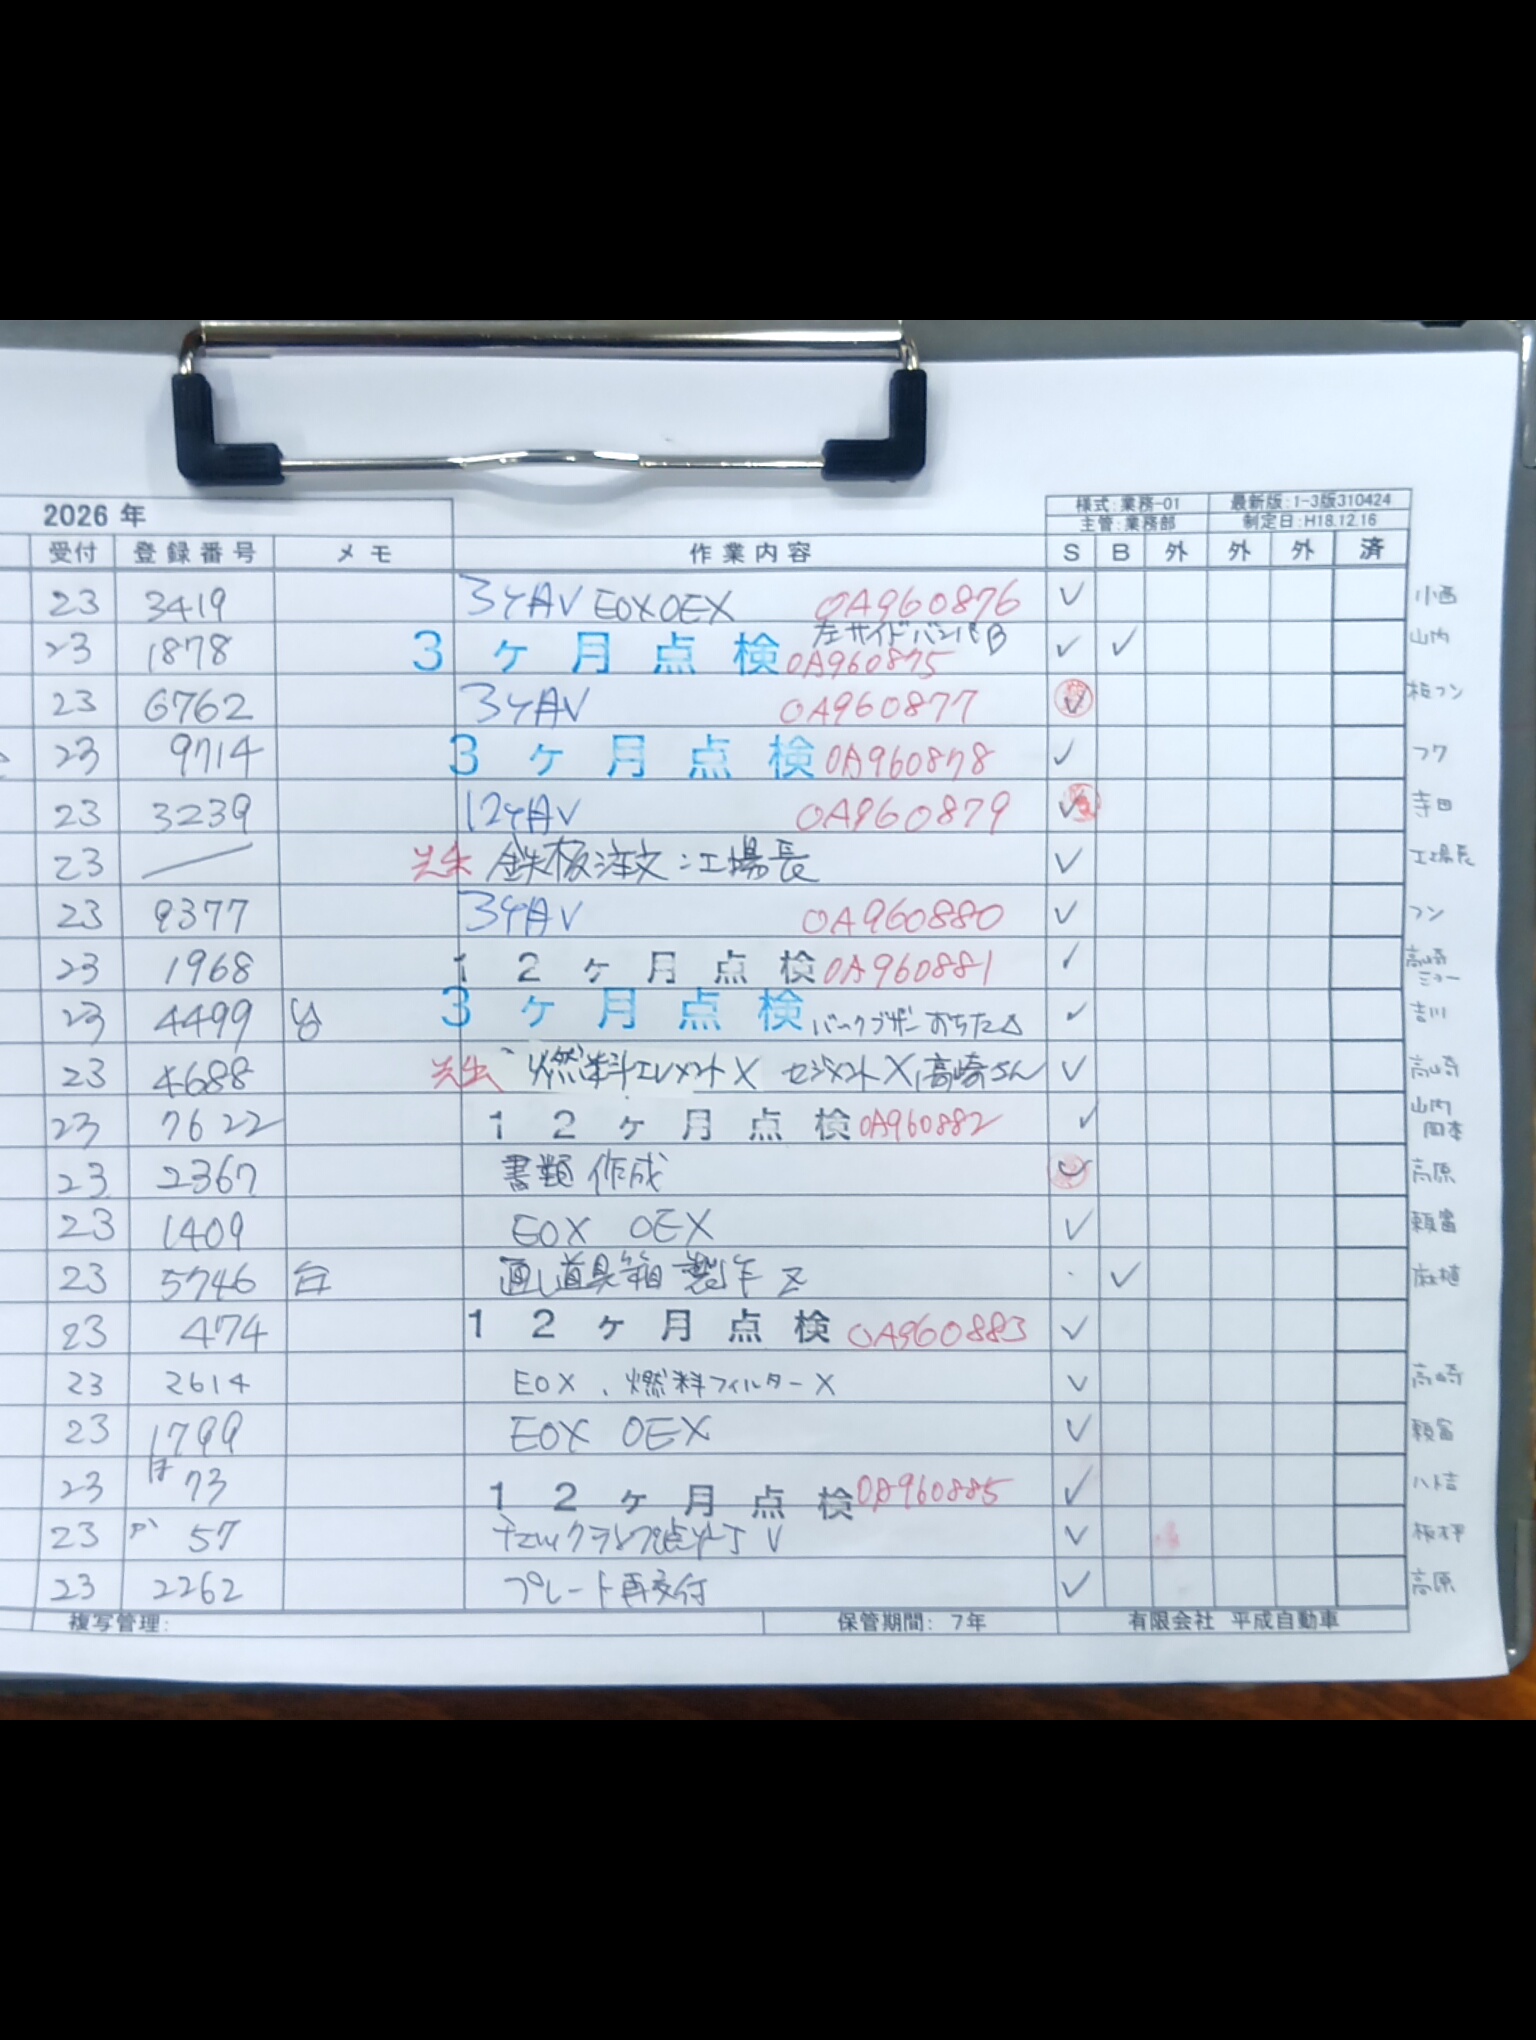 2026 年
様式:業務-01 最新版:1-3版310424
主管:業務部 制定日:H18.12.16
受付 登録番号 メモ 作業内容 S B 外 外 外 済
23 3419 3ケAV EOX OEX OA960876 ✓ 小西
左サイドバンパB
23 1878 3ヶ月点検 OA960875 ✓ ✓ 山内
23 6762 3ケAV OA960877 ✓ フン
23 9714 3ヶ月点検 OA960878 ✓ フク
23 3239 12ケAV OA960879 ✓ 寺田
23 鉄板注文:工場長 ✓ 工場長
23 9377 3ケAV OA960880 ✓ フン
23 1968 12ヶ月点検 OA960881 ✓ 高崎
23 4499 3ヶ月点検 バックブザー おちた△ ✓ 吉川
23 4688 燃料エレメントX セジメントX 高崎さん ✓ 高崎
23 7622 12ヶ月点検 OA960882 ✓ 山内
岡本
23 2367 書類作成 ✓ 高原
23 1409 EOX OEX ✓ 頼富
23 5746 台 通し道具箱 製作 Z ✓ 麻植
23 474 12ヶ月点検 OA960883 ✓
23 2614 EOX、燃料フィルターX ✓ 高崎
23 1799 EOX OEX ✓ 頼富
23 ほ 73 12ヶ月点検 OA960885 ✓
23 57 チェックランプ点灯 V ✓
23 2262 プレート再交付 ✓ 高原
複写管理: 保管期間: 7年 有限会社 平成自動車